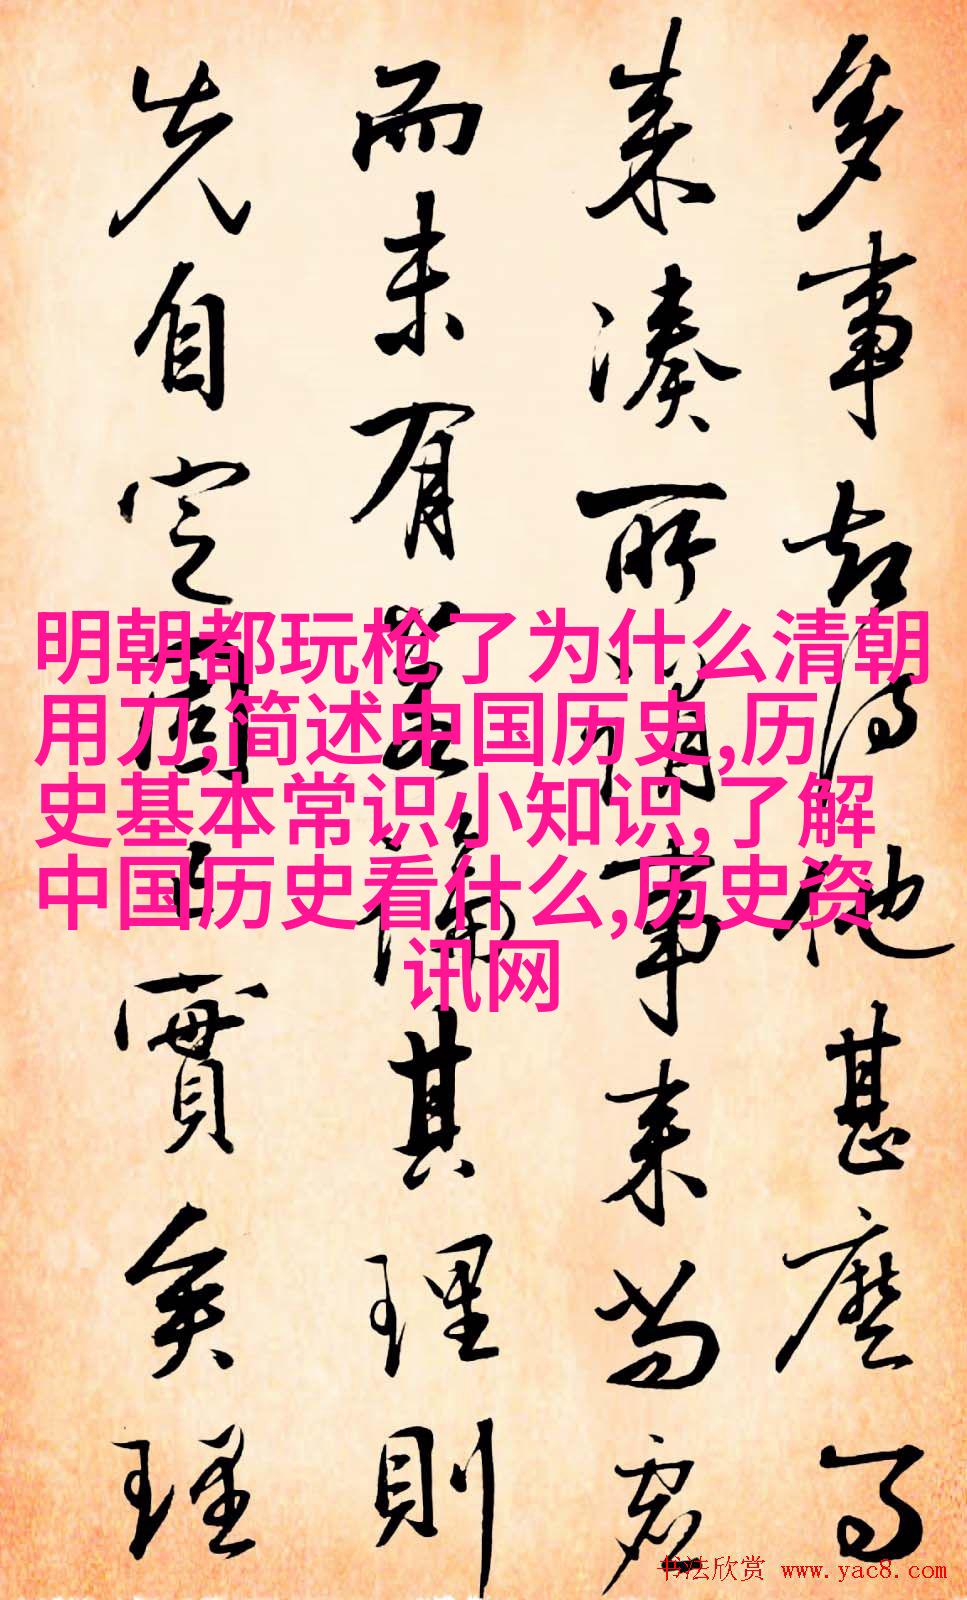 多事却湏他甚麽了
来凑所谓事来当应
而未有若论其理則
先自定固已實矣理
明朝都玩枪了为什么清朝
用刀,简述中国历史,历
史基本常识小知识,了解
中国历史看什么,历史资
讯网
书法欣赏 www.yac8.com